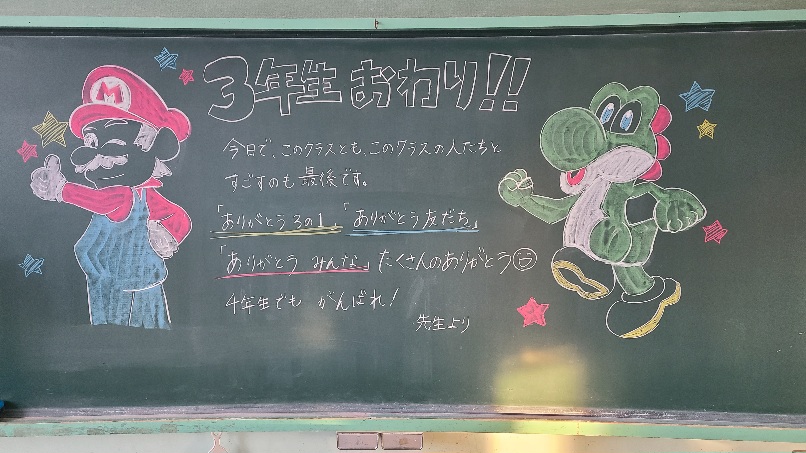 M
3年生 おわり!!
今日で、このクラスとも、このクラスの人たちと
すごすのも最後です。
「ありがとう3の1」「ありがとう友だち」
「ありがとう みんな」たくさんのありがとう
4年生でも がんばれ!
先生より